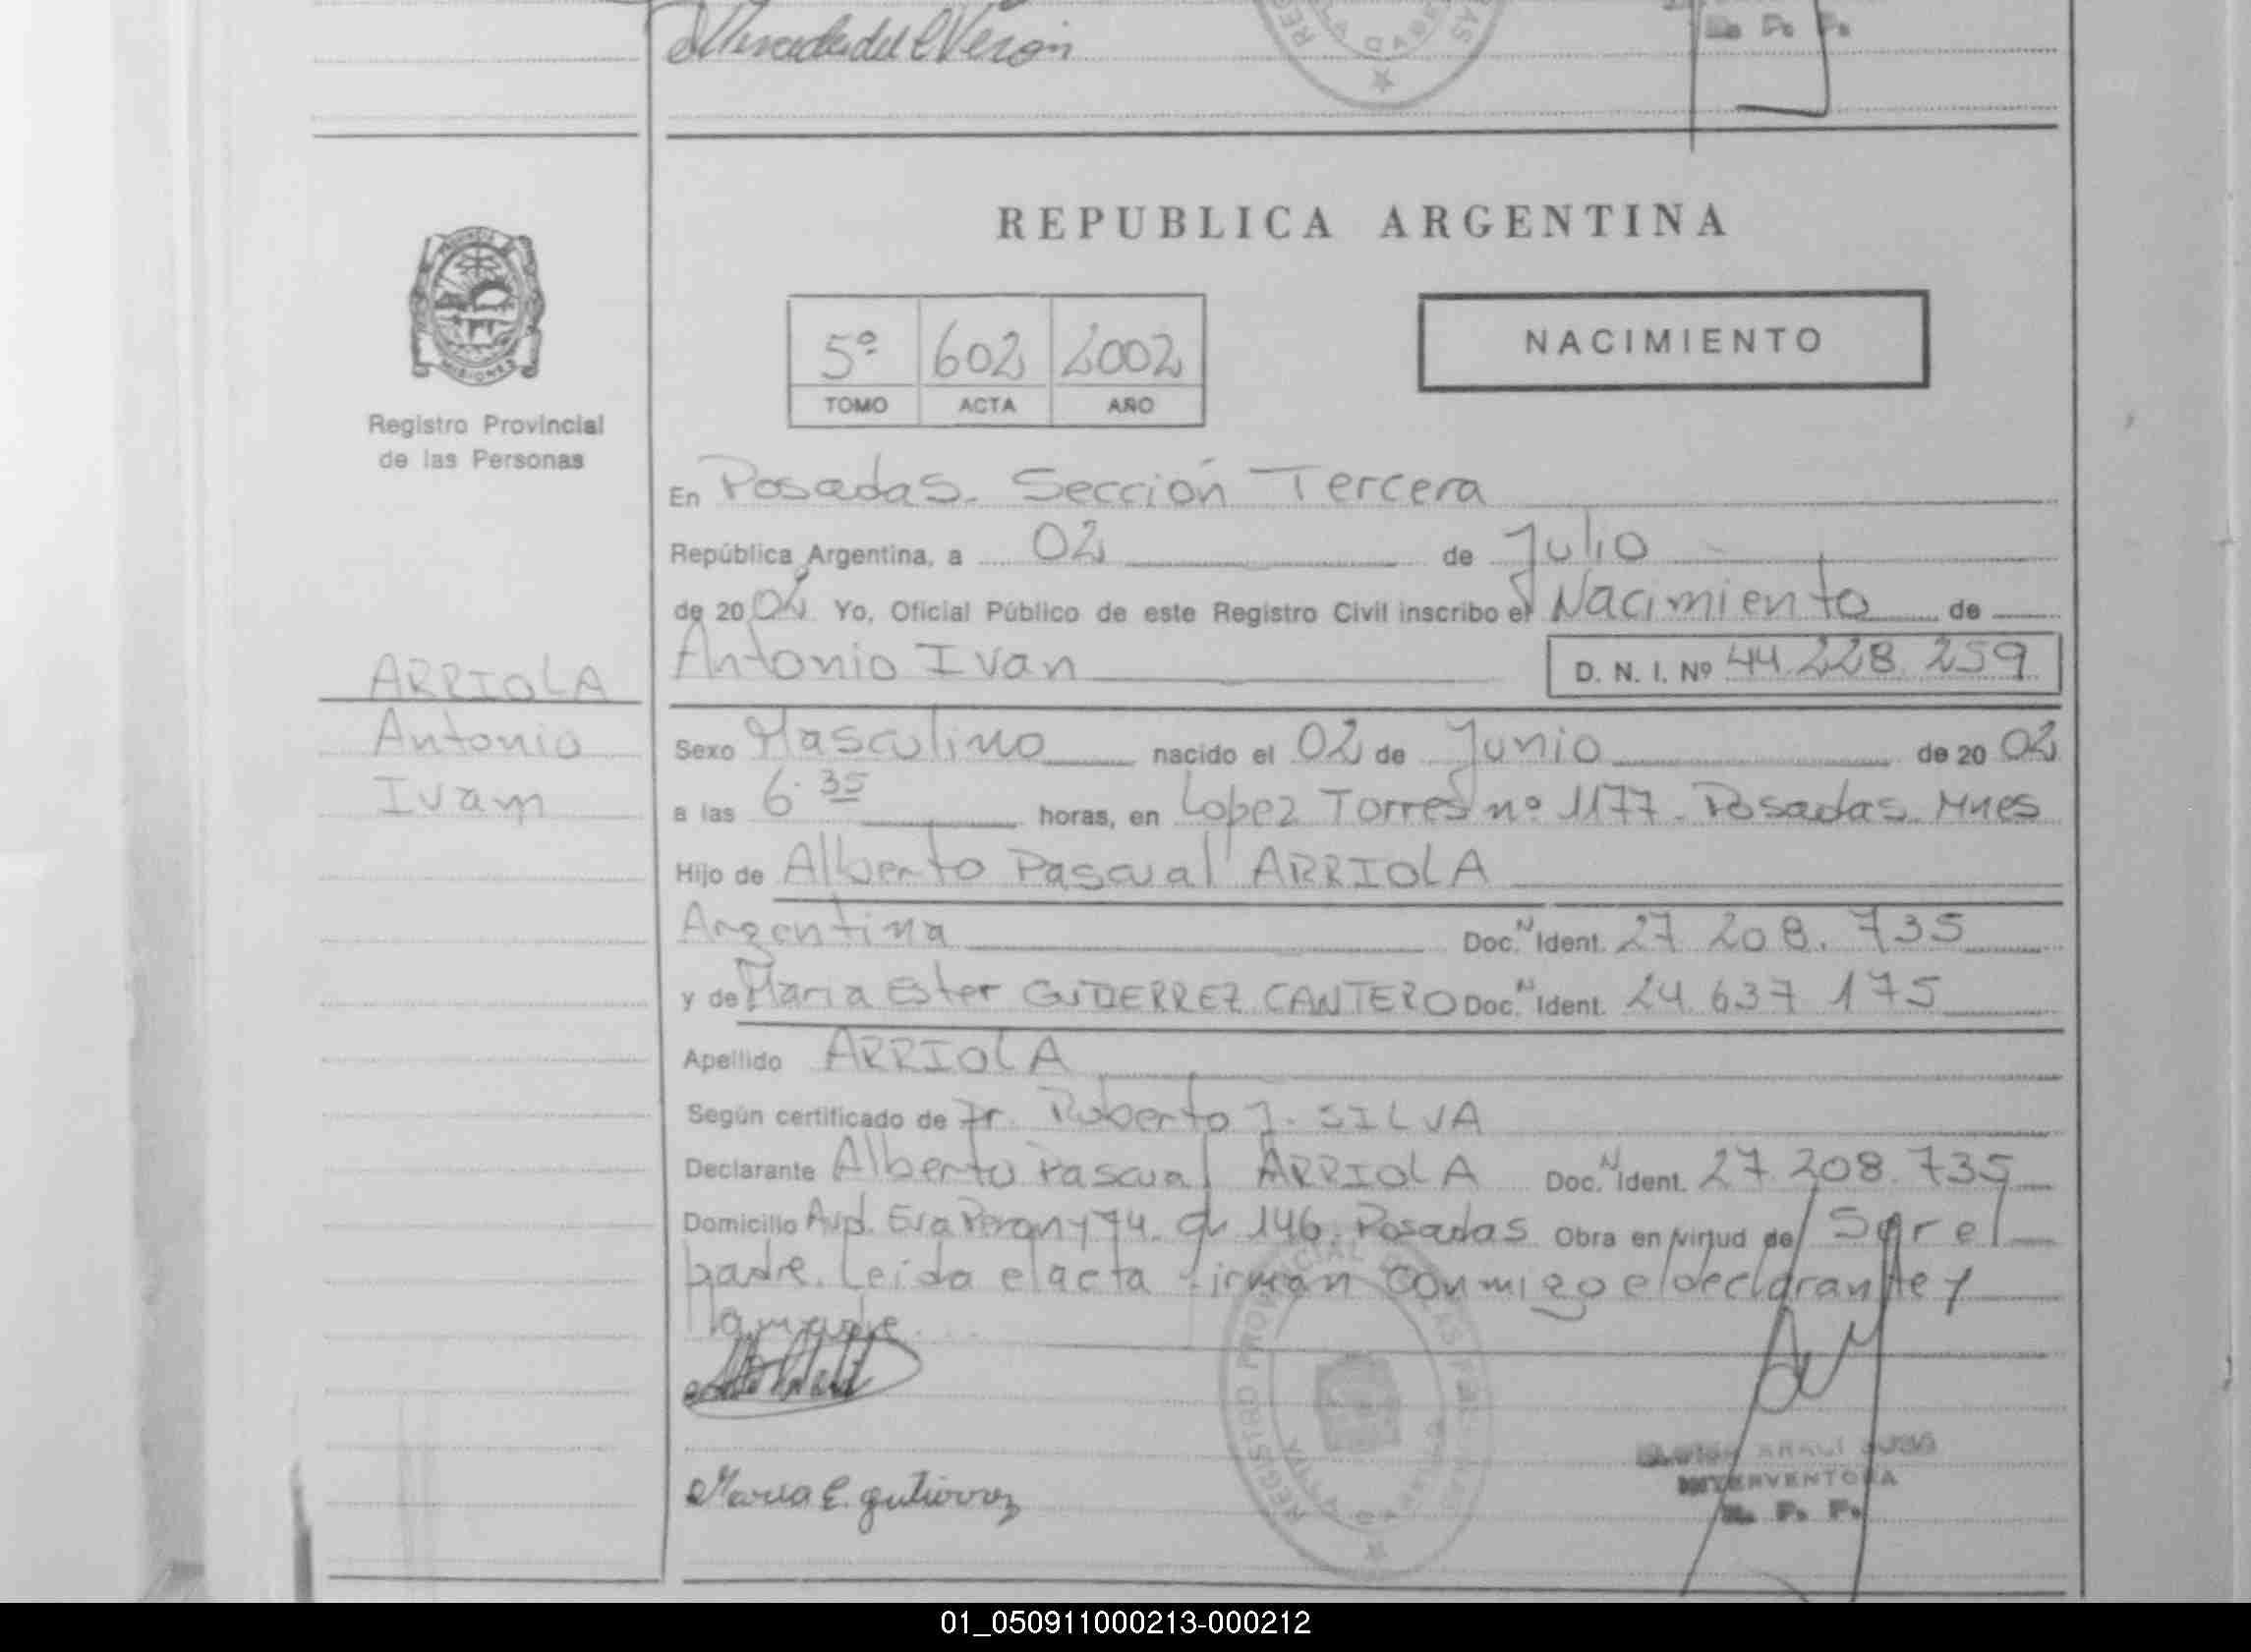 REPUBLICA ARGENTINA
NACIMIENTO
5º 602 2002
TOMO ACTA AÑO
MISIONES
Registro Provincial
de las Personas
En Posadas. Sección Tercera
República Argentina, a 02 de Julio
de 2002 Yo, Oficial Público de este Registro Civil inscribo el Nacimiento de
ARRIOLA
Antonio
Ivan
Antonio Ivan D. N. I. Nº 44.228.259
Sexo Masculino nacido el 02 de Junio de 20 02
a las 6.35 horas, en Lopez Torres nº 1177. Posadas. Mnes
Hijo de Alberto Pascual ARRIOLA
Argentina Doc. N Ident. 27 208. 735
y de Maria Ester GUTIERREZ CANTERO Doc. N Ident. 24.637 175
Apellido ARRIOLA
Según certificado de Dr. Roberto J. SILVA
Declarante Alberto Pascual ARRIOLA Doc. N Ident. 27.208.735
Domicilio Avd. Eva Peron y 74. 146. Posadas Obra en virtud de Ser el
padre. Leida el acta firman conmigo el declarante y
la madre
REGISTRO PROVINCIAL DE LAS
Maria E. gutierrez
INTERVENTORA
R. P. P.
01_050911000213-000212